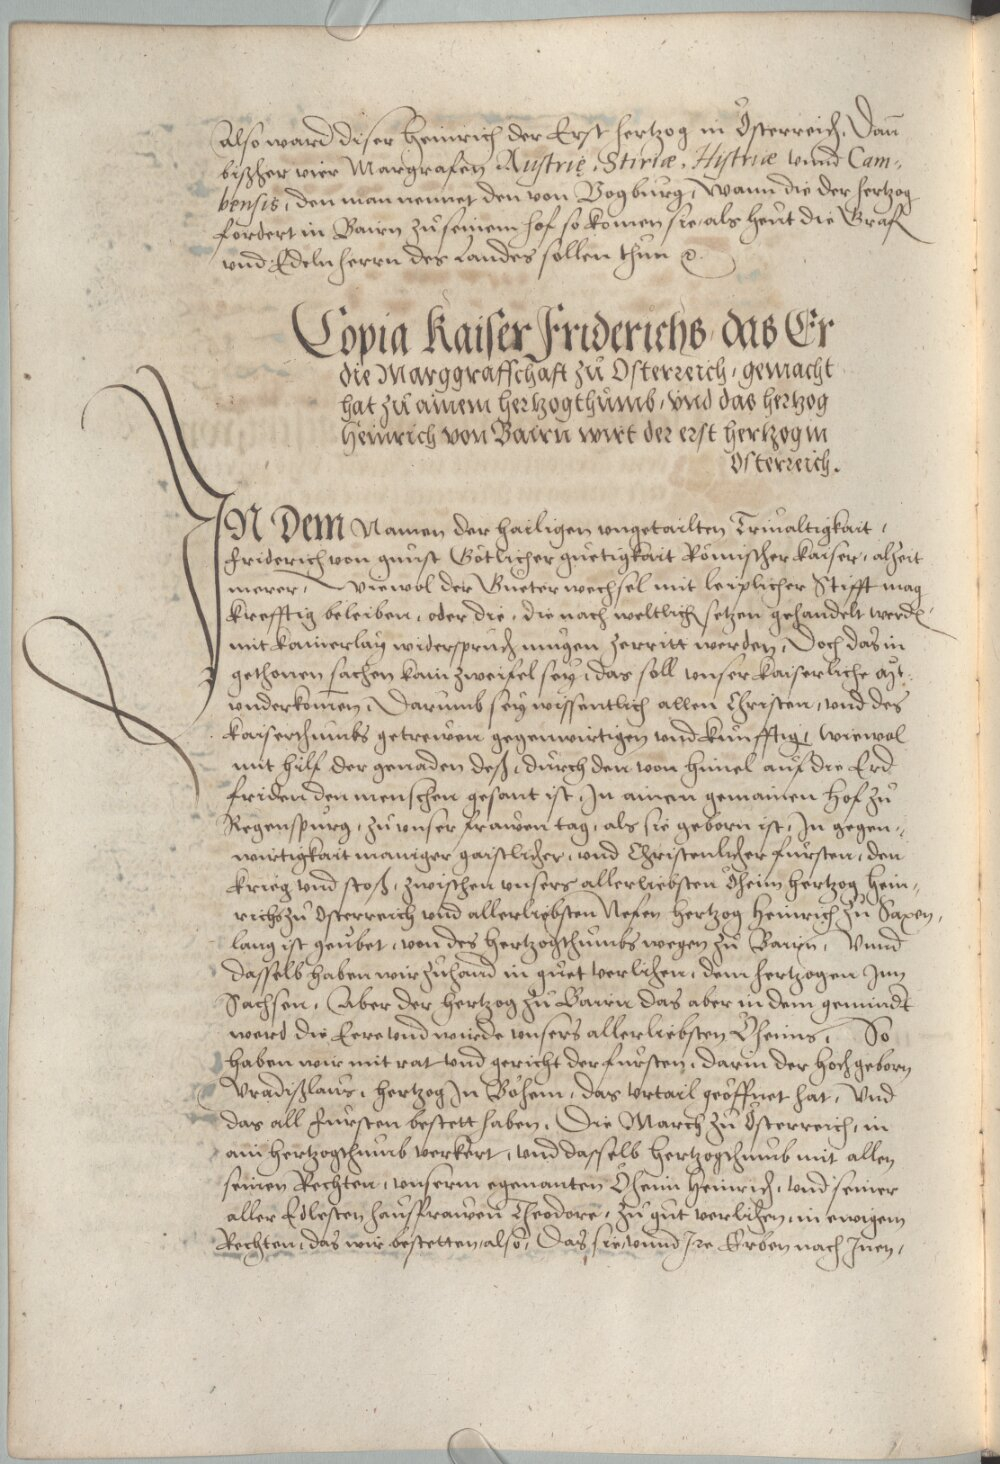 Also ward diser Heinrich der Erst hertzog in Österreich. Dan̄
bißher vier Margrafen Austrię, Stiriæ, Histriæ vnnd Cam-
bensis, den man nennet den von Vogburg, Wann die der hertzog
fordert in Bairn zů seinem hof so komen sie, als heut die Graf
vnd Edeln herrn des Landes sollen thůn
Copia Kaiser Friderichs, das Er
die Marggraffschafft zů Osterreich, gemacht
hat zů ainem hertzogthůmb, vnd das hertzog
Heinrich von Bairn wirt der erst hertzog in
Osterreich.
IN Dem Namen der hailigen vngetailten Triualtigkait,
Friderich von gunst Götlicher guetigkait Römischer Kaiser, alzeit
merer, Wiewol der Gueter wechsel mit leiplicher Stifft mag
krefftig beleiben, oder die, die nach weltlich setzen gehandelt werdē
mit kainerlay widerspruch mugen zerritt werden, Doch das in
gethonen sachen kain zweifel sey, das soll vnser kaiserliche
vnderkomen, Darumb sey wissentlich allen Christen, vnd des
kaiserthumbs getrewen gegenwirtigen vnd kunfftig, wiewol
mit hilf der genaden deß, durch den von himel auf die Erd
friden den menschen gesant ist, In ainem gemainen hof zů
Regenspurg, zů vnser frawen tag, als sie geborn ist, In gegen-
wirtigkait maniger gaistlicher, vnd Christenlicher fursten, den
krieg vnd stoß, zwischen vnsers allerliebsten Öheim hertzog Hein-
richs zů Osterreich vnd allerliebsten Nefen hertzog Heinrich zů Saxen,
lang ist geubet, von des hertzogthumbs wegen zů Bairn, Vnnd
dasselb haben wir zůhand in guet verlihen, dem hertzogen Inn
Sachsen, Aber der hertzog zů Bairn das aber in dem gemindt
werd die Eere vnd wurde vnsers allerliebsten Öheims, So
haben wir mit rat vnd gericht der fursten, darin der hochgeborn
Vradißlaus, hertzog In Böhem, das vrtail geöffnet hat, Vnd
das all fursten bestett haben, Die March zů Österreich, in
ain hertzogthumb verkert, vnd dasselb hertzogthumb mit allen
seinen Rechten, vnserm egenanten Öheim Heinrich, vnd seiner
aller Edlesten haußfrawen Theodore, zů gut verlihen, in ewigem
Rechten, das wir bestetten also, Das sie, vnnd Ire Erben nach Inen,